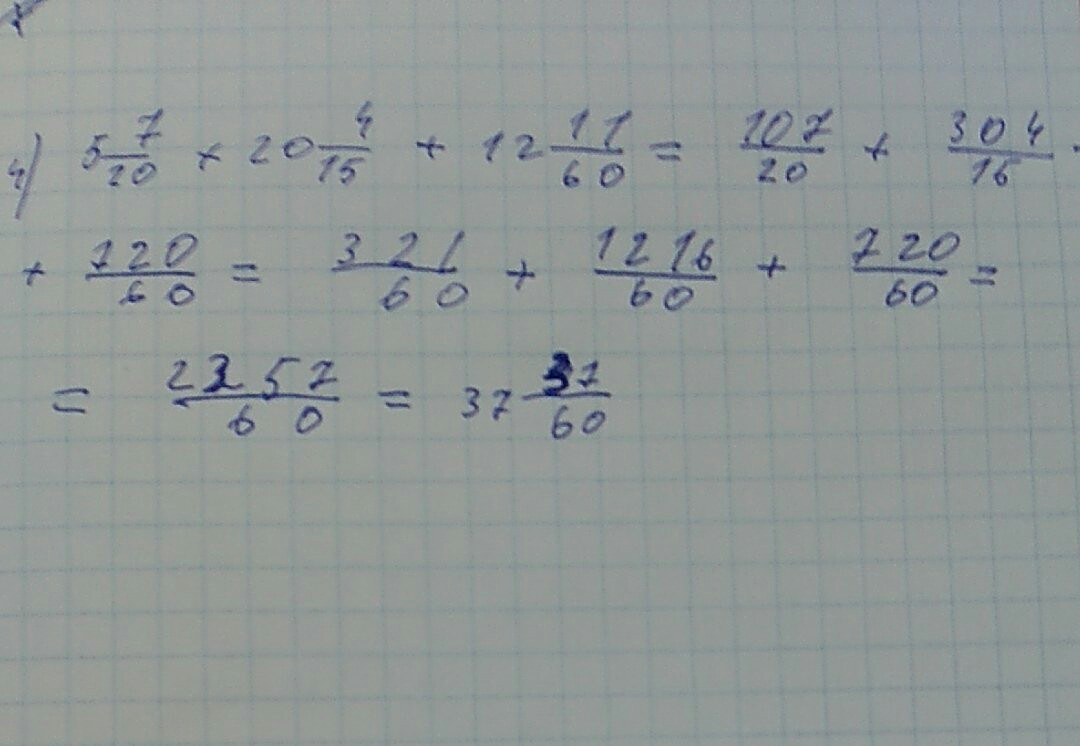 4) 5 7/20 + 20 4/15 + 12 11/60 = 107/20 + 304/15 +
+ 720/60 = 321/60 + 1216/60 + 720/60 =
= 2257/60 = 37 37/60